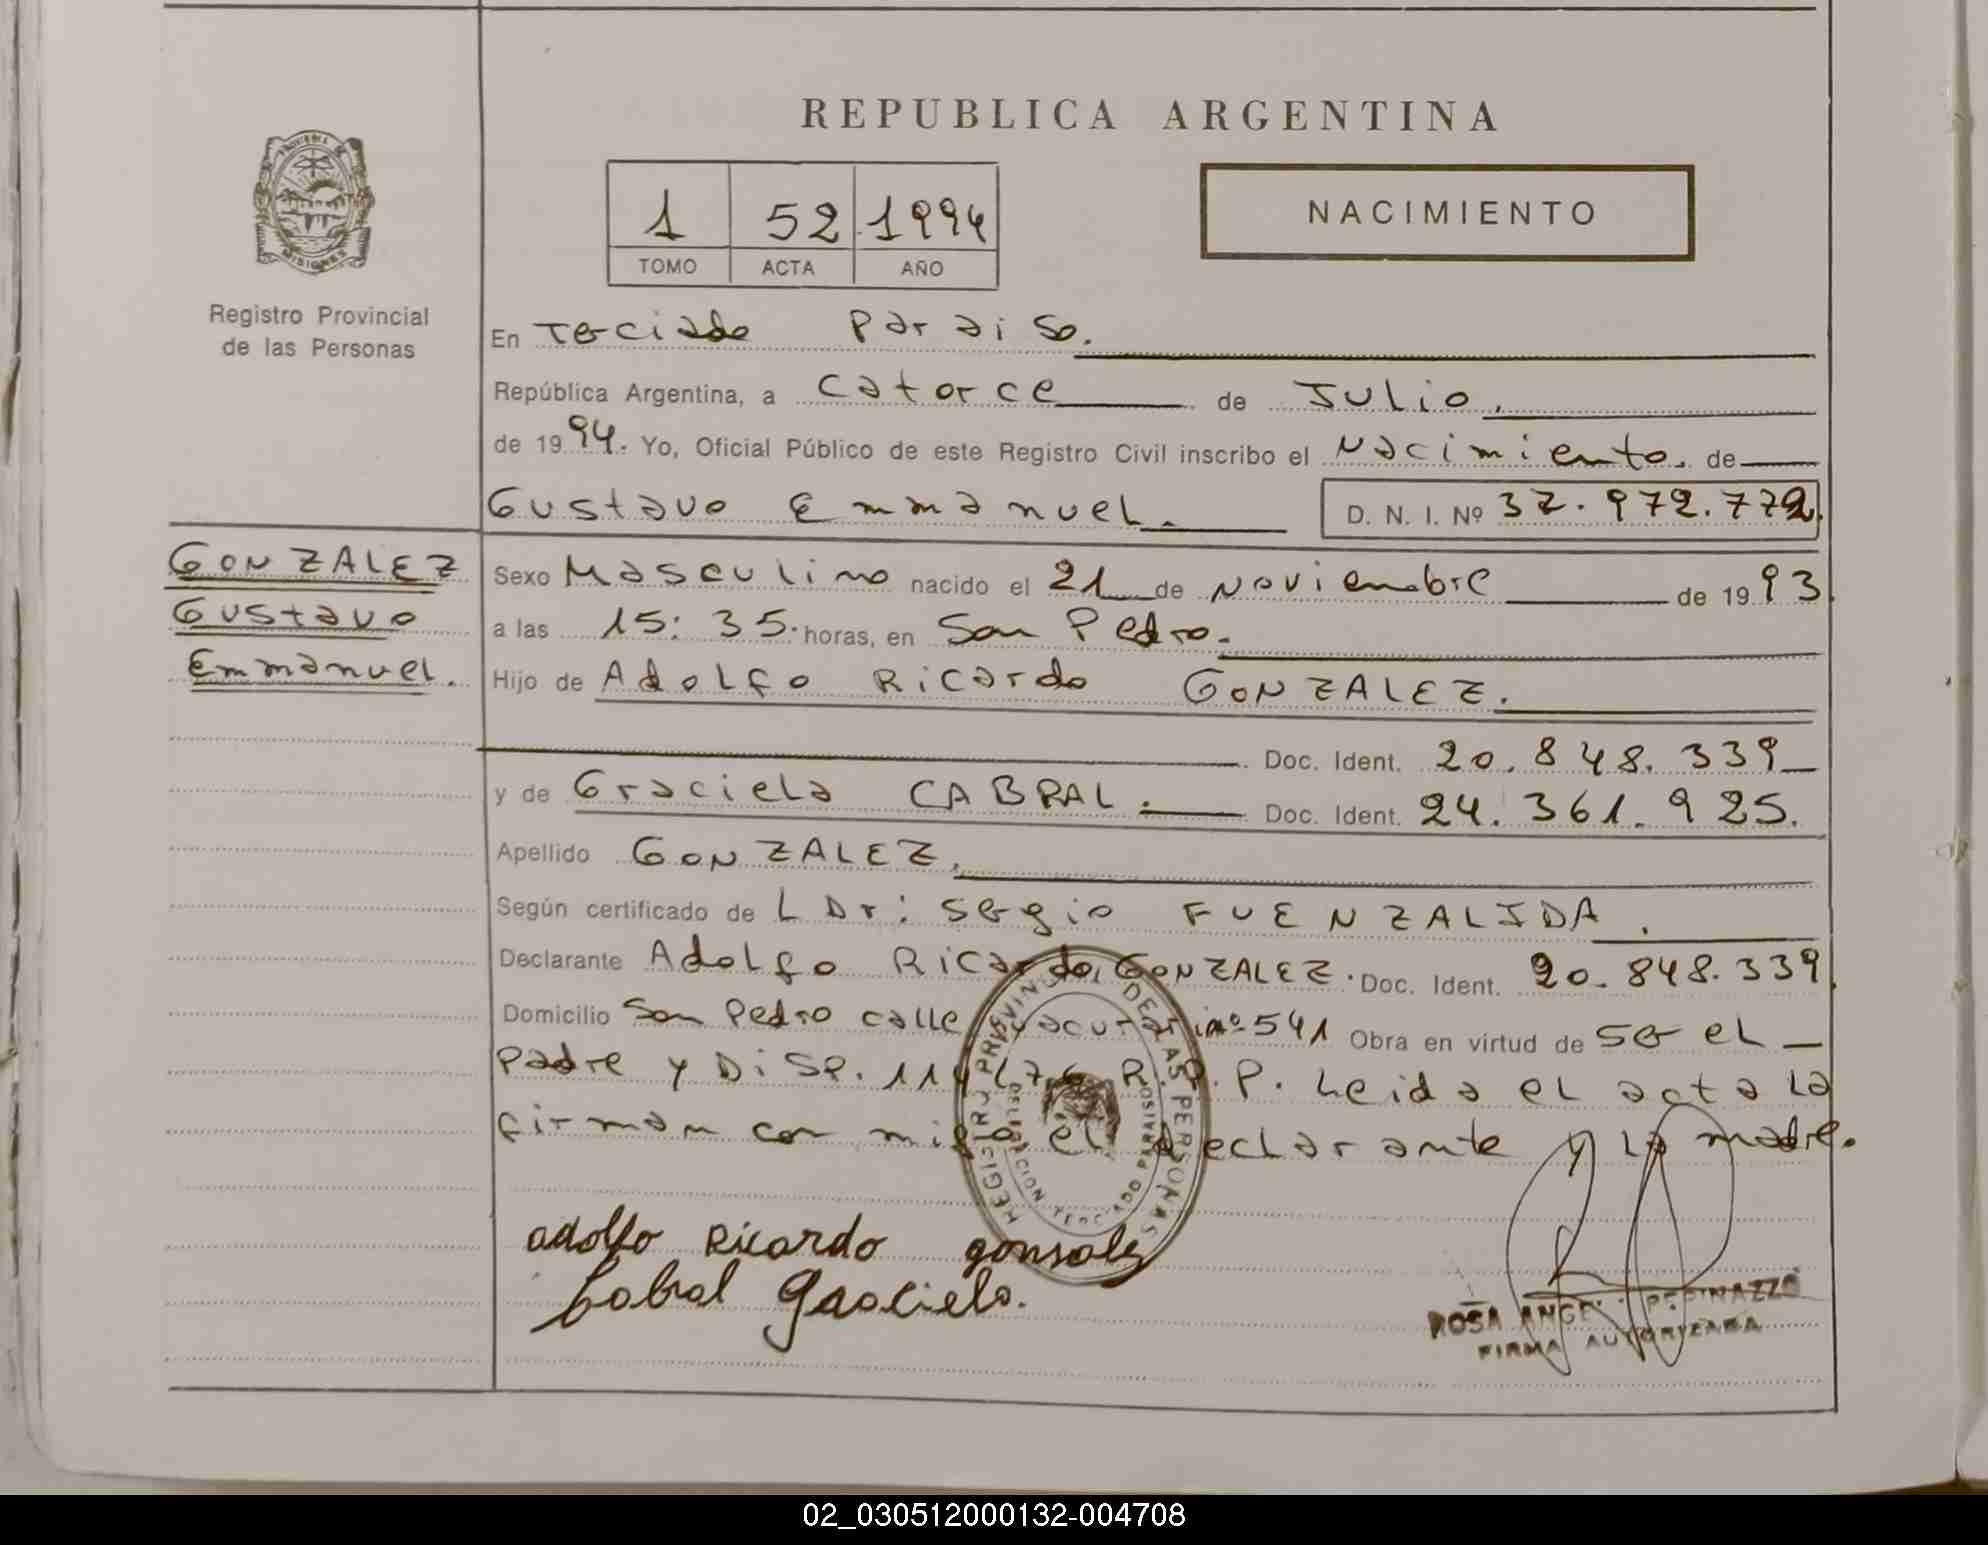 REPUBLICA ARGENTINA
PROVINCIA DE MISIONES
Registro Provincial
de las Personas
1 52 1994
TOMO ACTA AÑO
NACIMIENTO
En Terciado Paraiso.
República Argentina, a catorce de Julio.
de 1994. Yo, Oficial Público de este Registro Civil inscribo el Nacimiento. de
Gustavo Emmanuel. D. N. I. Nº 37.972.772.
GONZALEZ
Gustavo
Emmanuel.
Sexo Masculino nacido el 21 de Noviembre de 1993.
a las 15:35. horas, en San Pedro.
Hijo de Adolfo Ricardo GONZALEZ.
Doc. Ident. 20.848.339
y de Graciela CABRAL. Doc. Ident. 24.361.925.
Apellido GONZALEZ.
Según certificado de L Dr: Sergio FUENZALIDA.
Declarante Adolfo Ricardo GONZALEZ. Doc. Ident. 20.848.339.
Domicilio San Pedro calle nº 541 Obra en virtud de ser el
padre y Disp. R.P.P. Leida el acta la
firman con migo el declarante y la madre.
REGISTRO PROVINCIAL DE LAS PERSONAS
DELEGACION PARAISO
adolfo Ricardo gonsalez
Cabral Graciela.
ROSA ANGEL
FIRMA AUTORIZADA
02_030512000132-004708